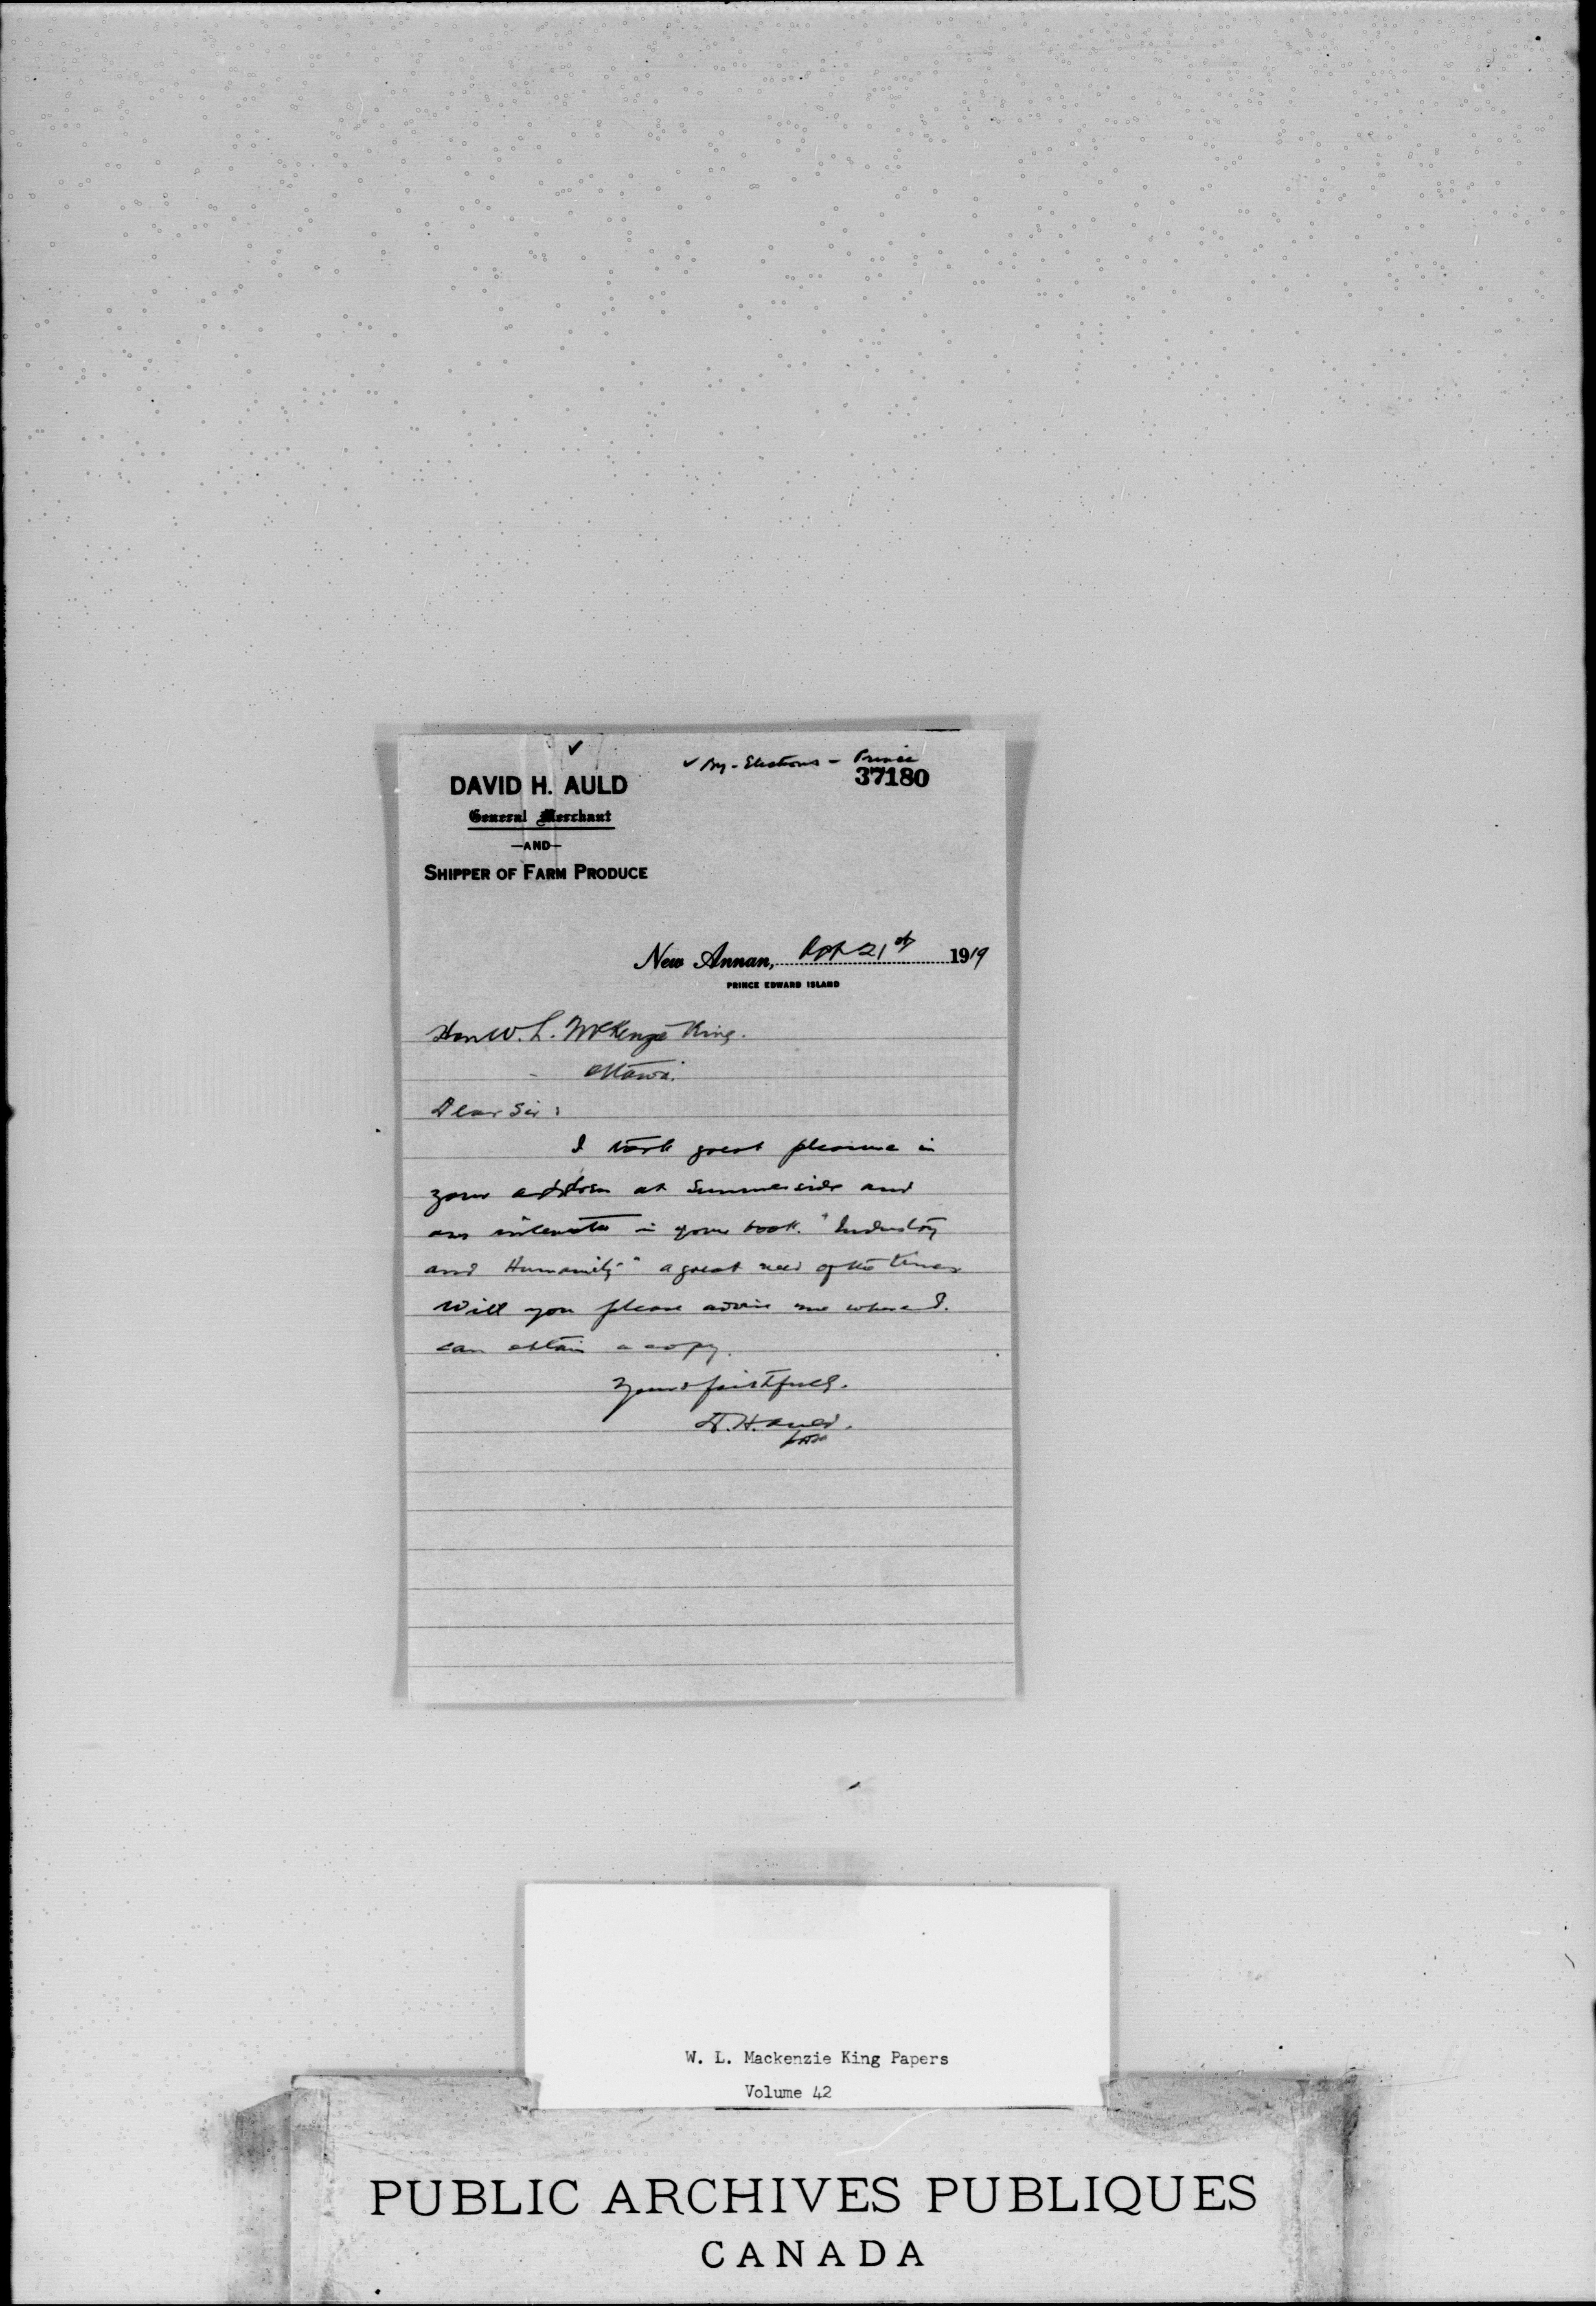 ✓
✓ By-Elections - Prince
37180
DAVID H. AULD
General Merchant
—AND—
SHIPPER OF FARM PRODUCE
New Annan, 21st 1919
PRINCE EDWARD ISLAND
Hon W. L. McKenzie King.
Ottawa.
Dear Sir:
I took great pleasure in
your address at Summerside and
am interested in your book. "Industry
and Humanity" a great need of the times
Will you please advise me where I.
can obtain a copy.
Yours faithfully.
D. H. Auld.
W. L. Mackenzie King Papers
Volume 42
PUBLIC ARCHIVES PUBLIQUES
CANADA